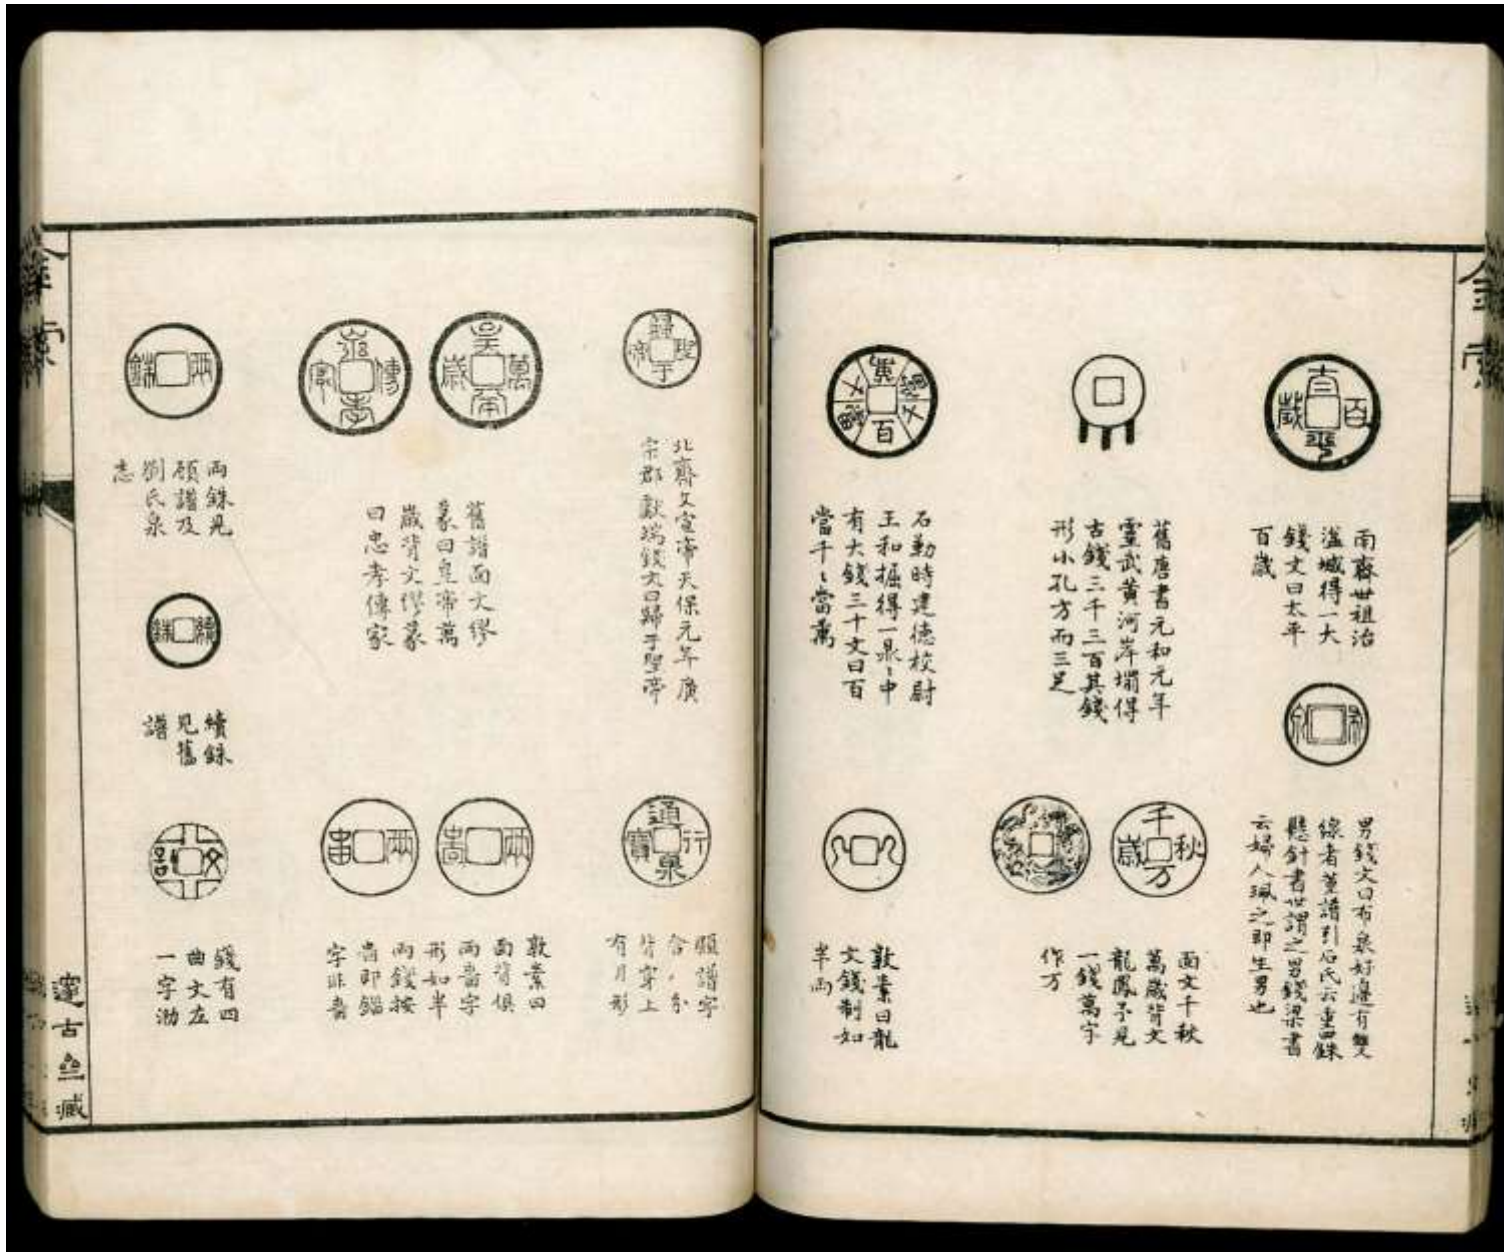 金索
百歲
南齊世祖治
湓城得一大
錢文曰太平
百歲
男錢文曰布泉好邊有雙
線者董譜引石氏云重四銖
懸針書世謂之男錢梁書
云婦人珮之即生男也
舊唐書元和元年
靈武黃河岸塌得
古錢三千三百其錢
形小孔方而三足
千秋万歲
面文千秋
萬歲背文
龍鳳予見
一錢萬字
作万
石勒時建德校尉
王和掘得一鼎〻中
有大錢三十文曰百
當千〻當萬
敦素曰龍
文錢制如
半兩
歸于聖帝
北齊文宣帝天保元年廣
宗郡獻瑞錢文曰歸于聖帝
通行泉寶
顧譜字
背穿上
有月形
皇帝萬歲
忠孝傳家
舊譜面文繆
篆曰皇帝萬
歲背文繆篆
曰忠孝傳家
敦素曰
面背俱
兩畨字
形如半
兩錢按
字非畨
兩銖
兩銖見
顧譜及
劉氏泉
志
續銖
續銖
見舊
譜
錢有四
曲文左
一字泐
金索
邃古亝藏